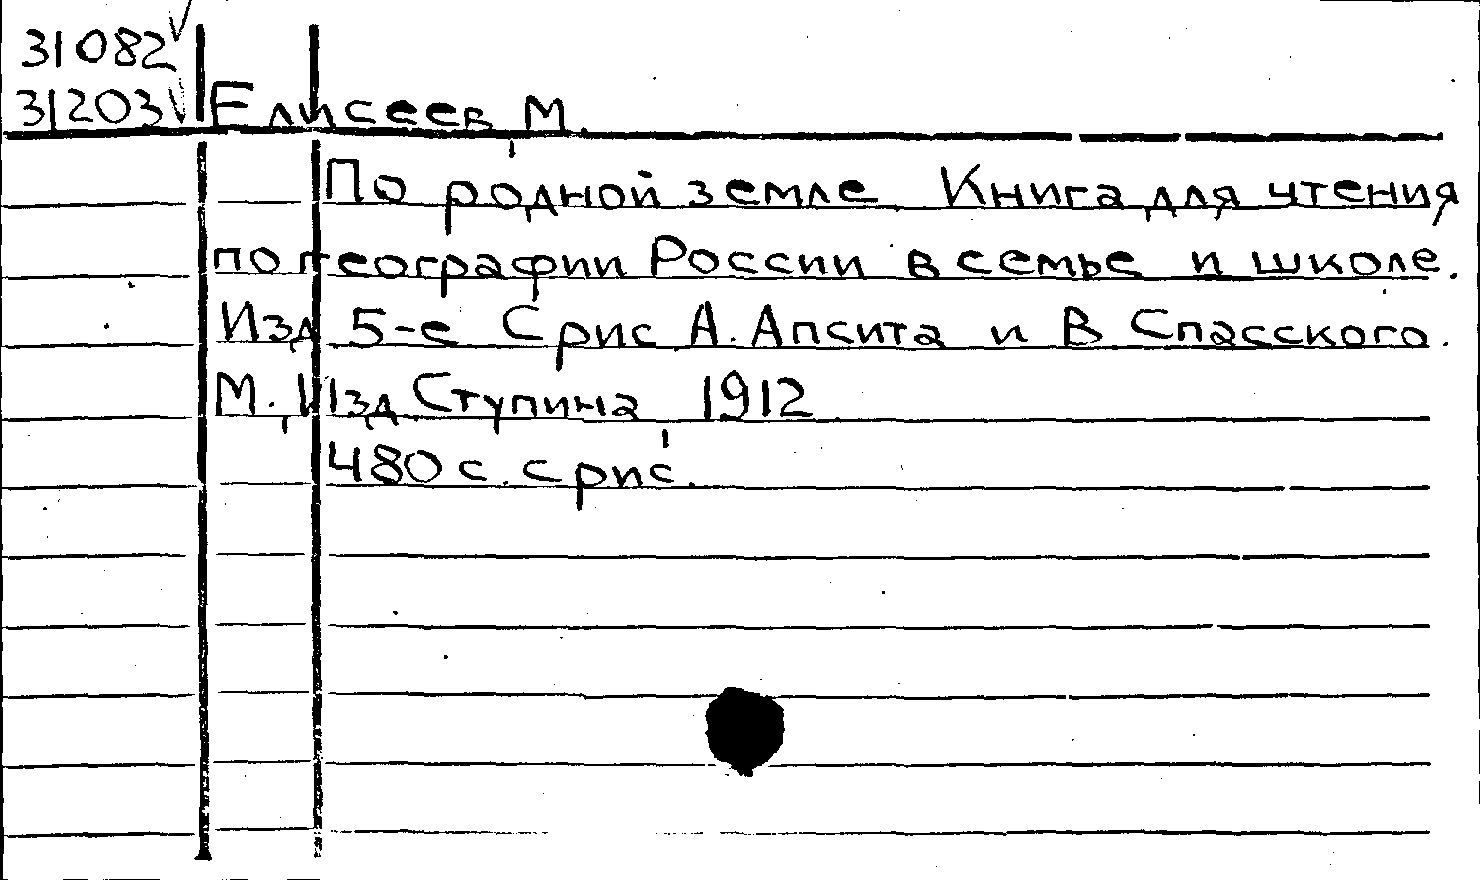 31082 √
31203 √ Елисеев, М.
По родной земле Книга для чтения
по географии России в семье и школе.
Изд 5-е С рис А. Апсита и В Спасского.
М., Изд Ступина, 1912
480 с. с рис.